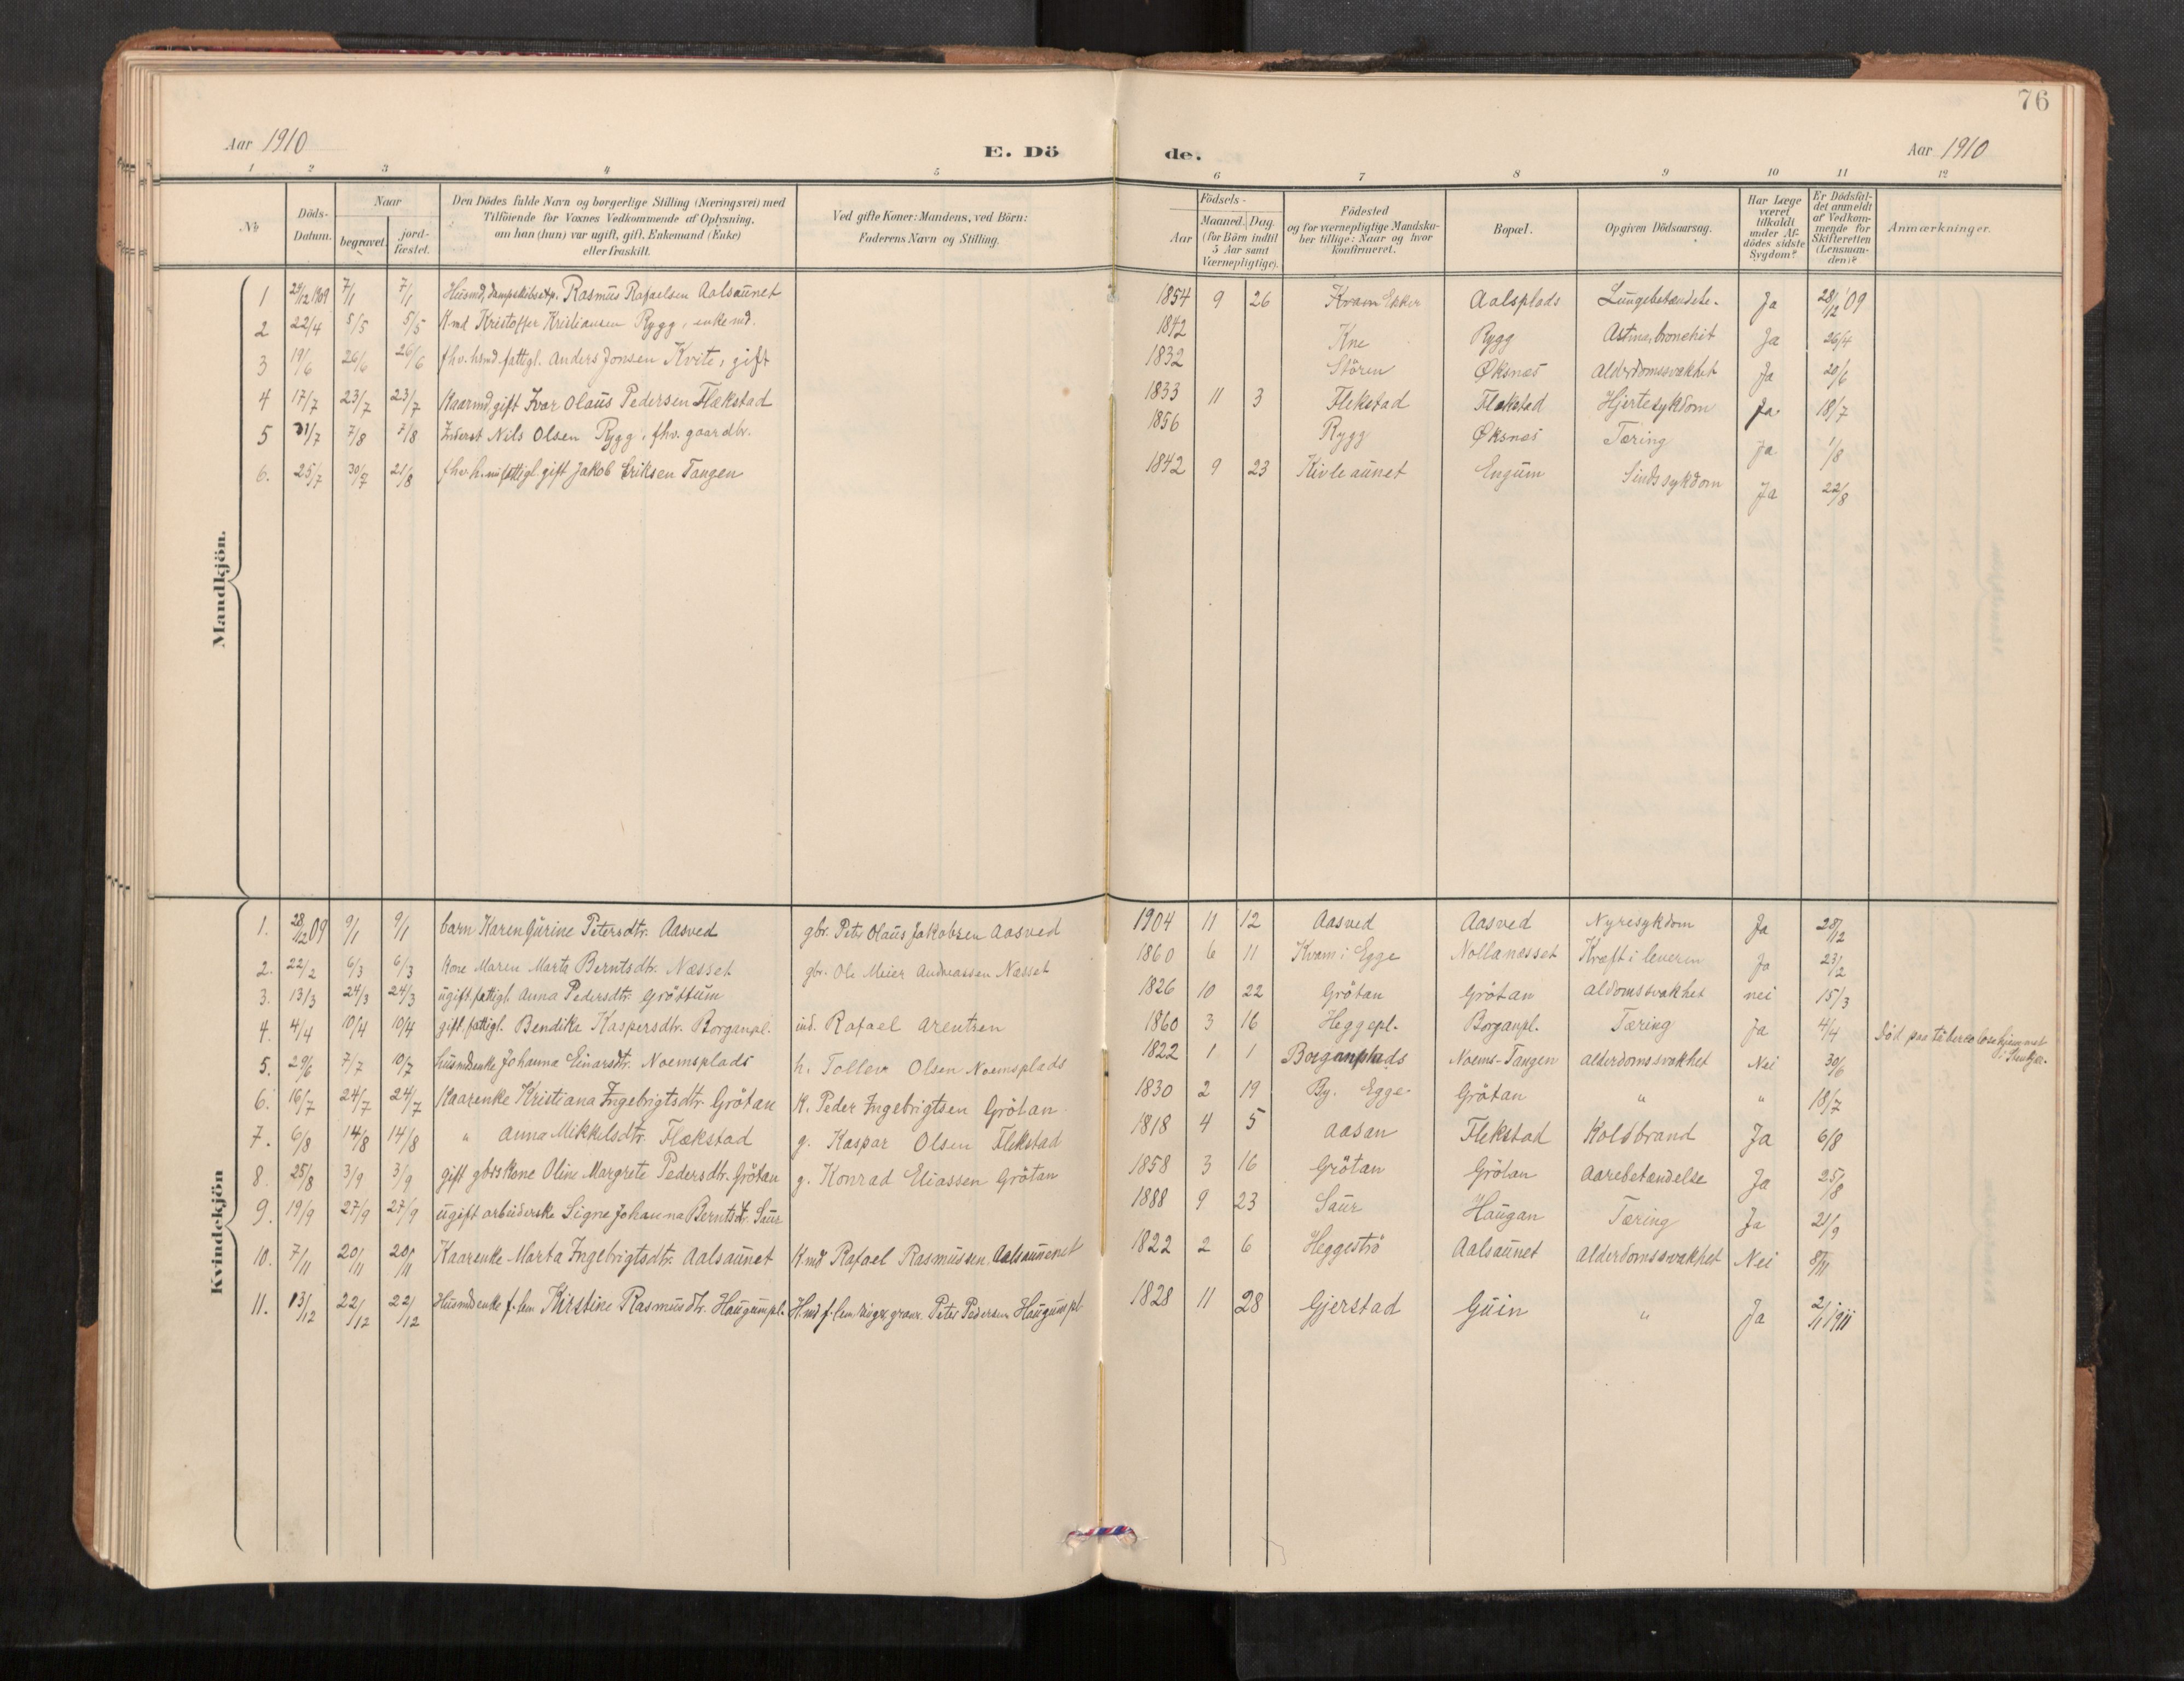 76
Aar 1910
E. Dö de.
Aar 1910
1 2 3 4 5 6 7 8 9 10 11 12
No
Döds-Datum.
Naar
begravet.
jordfæstet.
Den Dödes fulde Navn og borgerlige Stilling (Næringsvei) med
Tilföiende for Voxnes Vedkommende af Oplysning,
om han (hun) var ugift, gift, Enkemand (Enke)
eller fraskilt.
Ved gifte Koner: Mandens, ved Börn:
Faderens Navn og Stilling.
Födsels-
Aar
Maaned. Dag
(for Börn indtil
5 Aar samt
Værnepligtige).
Födested
og for værnepligtige Mandskaber tillige: Naar og hvor
konfirmeret.
Bopæl.
Opgiven Dödsaarsag.
Har Læge
været
tilkaldt
under Afdödes sidste
Sygdom?
Er Dödsfaldet anmeldt
af Vedkommende for
Skifteretten
(Lensmanden)?
Anmærkninger.
Mandkjön.
1 29/12 1909 7/1 7/1 Husmd, dampskibsexp. Rasmus Rafaelsen Aalsaunet 1854 9 26 Kvam Aalsplads Lungebetændelse. Ja 28/12 09
2 22/4 5/5 5/5 Kmd Kristoffer Kristiansen Rygg, enkemd. 1842 Kne Rygg Astma, bronchit Ja 26/4
3 19/6 26/6 26/6 fhv. hsmd fattigl. Anders Jonsen Kvite, gift 1832 Stören Øksnes Alderdomssvakhet Ja 20/6
4 17/7 23/7 23/7 Kaarmd, gift Ivar Olaus Pedersen Flækstad 1833 11 3 Flekstad Flekstad Hjertesykdom Ja 18/7
5 31/7 7/8 7/8 Inderst Nils Olsen Rygg, fhv. gaardbr. 1856 Rygg Øksnes Tæring Ja 1/8
6. 25/7 30/7 21/8 fhv. h.m fattigl. gift Jakob Eriksen Tangen 1842 9 23 Kivleaunet Engum Sindssykdom Ja 22/8
Kvindekjön
1. 28/12 09 9/1 9/1 barn Karen Gurine Petersdtr. Aasved gbr. Peter Olaus Jakobsen Aasved 1904 11 12 Aasved Aasved Nyresykdom Ja 28/12
2. 22/2 6/3 6/3 Kone Maren Marta Berntsdtr. Næsset gbr. Ole Meier Andreassen Næsset 1860 6 11 Kvam i Egge Nollanæsset Kræft i leveren Ja 23/2
3. 13/3 24/3 24/3 ugift, fattigl. Anna Pedersdtr. Gröttum 1826 10 22 Grötan Grötan aldomssvakhet nei 15/3
4. 4/4 10/4 10/4 gift, fattigl. Bendikke Kaspersdtr. Borganpl. ind. Rafael Arentsen 1860 3 16 Heggepl. Borganpl. Tæring Ja 4/4 Död paa tuberculosehjemmet i Stenkjær.
5. 29/6 7/7 10/7 husmdenke Johanna Einarsdtr. Noemsplads h. Tollev Olsen Noemsplads 1822 1 1 Borganplads Noems-Tangen alderdomssvakhet Nei 30/6
6. 16/7 24/7 24/7 Kaarenke Kristiana Ingebrigtsdtr. Grötan K. Peder Ingebrigtsen Grötan 1830 2 19 By. Egge Grötan " " 18/7
7. 6/8 14/8 14/8 " Anna Mikkelsdtr. Flækstad g. Kaspar Olsen Flekstad 1818 4 5 Aasan Flekstad Koldbrand Ja 6/8
8. 25/8 3/9 3/9 gift gbrs Kone Oline Margrete Pedersdtr. Grötan g. Konrad Eliassen Grötan 1858 3 16 Grötan Grötan Aarebetændelse Ja 25/8
9. 19/9 27/9 27/9 ugift arbeiderske Signe Johanna Berntsdtr. Saur 1888 9 23 Saur Haugan Tæring Ja 21/9
10. 7/11 20/11 20/11 Kaarenke Marta Ingebrigtsdtr. Aalsaunet K.md Rafael Rasmussen Aalsaunet 1822 2 6 Heggeströ Aalsaunet Alderdomssvakhet Nei 8/11
11. 13/12 22/12 22/12 Husmdenke Kirstine Rasmusdtr. Haugumpl. H.md Peter Pedersen Haugumpl 1828 11 28 Gjerstad Guin " Ja 2/1 1911